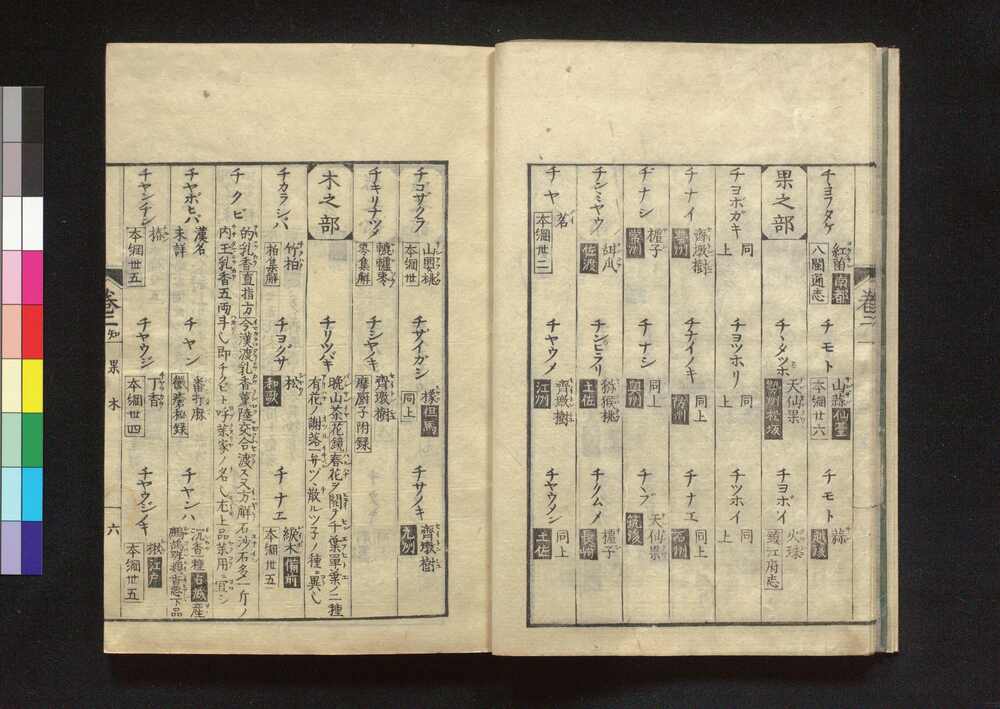 チヨフタケ 紅菌 南都 八閩通志
チモト 山蒜 仙臺 本綱廿六
チモト 蒜 越後
果之部
チヽタツホ 天仙果 勢州松坂
チヨボイ 火球 鎮江府志
チヨボガキ 同上
チヨツホリ 同上
チツホイ 同上
チナイ 齊墩樹 豊州
チナイノキ 同上 防州
チナエ 同上 石州
ヂナシ 樝子 豊州
チナシ 同上 奥州
チヽブ 天仙果 筑後
チンミヤウ 佐渡
チンピラリ 獼猴桃 土佐
チクムメ 樝子 長崎
チヤ 茗 本綱卅二
チヤウメ 齊墩樹 江州
チヤウメン 同上 土佐
チゴザクラ 山嬰桃 本綱卅
チザイガシ 橡 但馬 同上
チサノキ 齊墩樹 九州
チキリナツメ 轆轤棗 棗集解
チシヤノキ 齊墩樹 摩厨子附録
木之部
チリツバキ 晩山茶 花鏡 春花ヲ開ク千葉單葉ノ二種有花ノ謝落一弁ツヽ散ルツ子ノ種ニ異ル
チカラシバ 竹柏 柏集解
チヨクサ 松 和歌
チナエ 緞木 備前 本綱卅五
チクビ 的乳香 直指方 今漢渡乳香薫陸交合渡ス又方解石沙石多一斤ノ
内玉乳香五両斗シ即チクビト呼薬家ノ名シ尤上品薬用ニ宜シ
チヤボヒバ 漢名未詳
チヤン
チヤンハ 沉香種 石城産
チヤンチン 椿 本綱卅五
チヤウジ 丁香 本綱卅四
チヤウジノキ 楸 江戸 本綱卅五
卷二 知 果 木 六